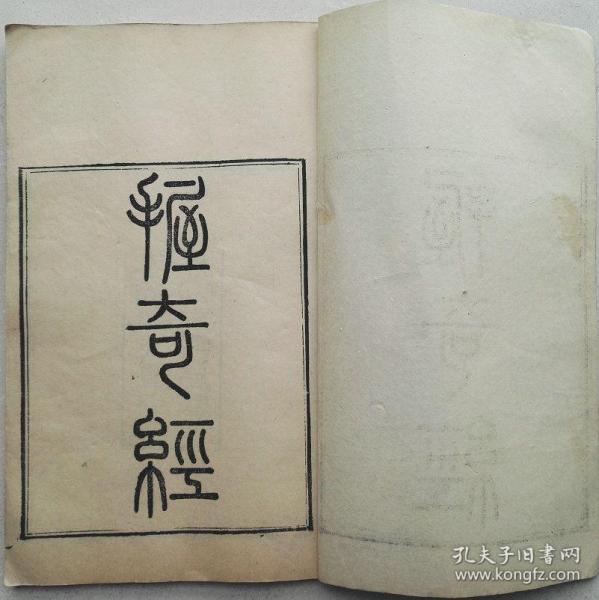 握奇經
孔夫子旧书网
www.kongfz.com